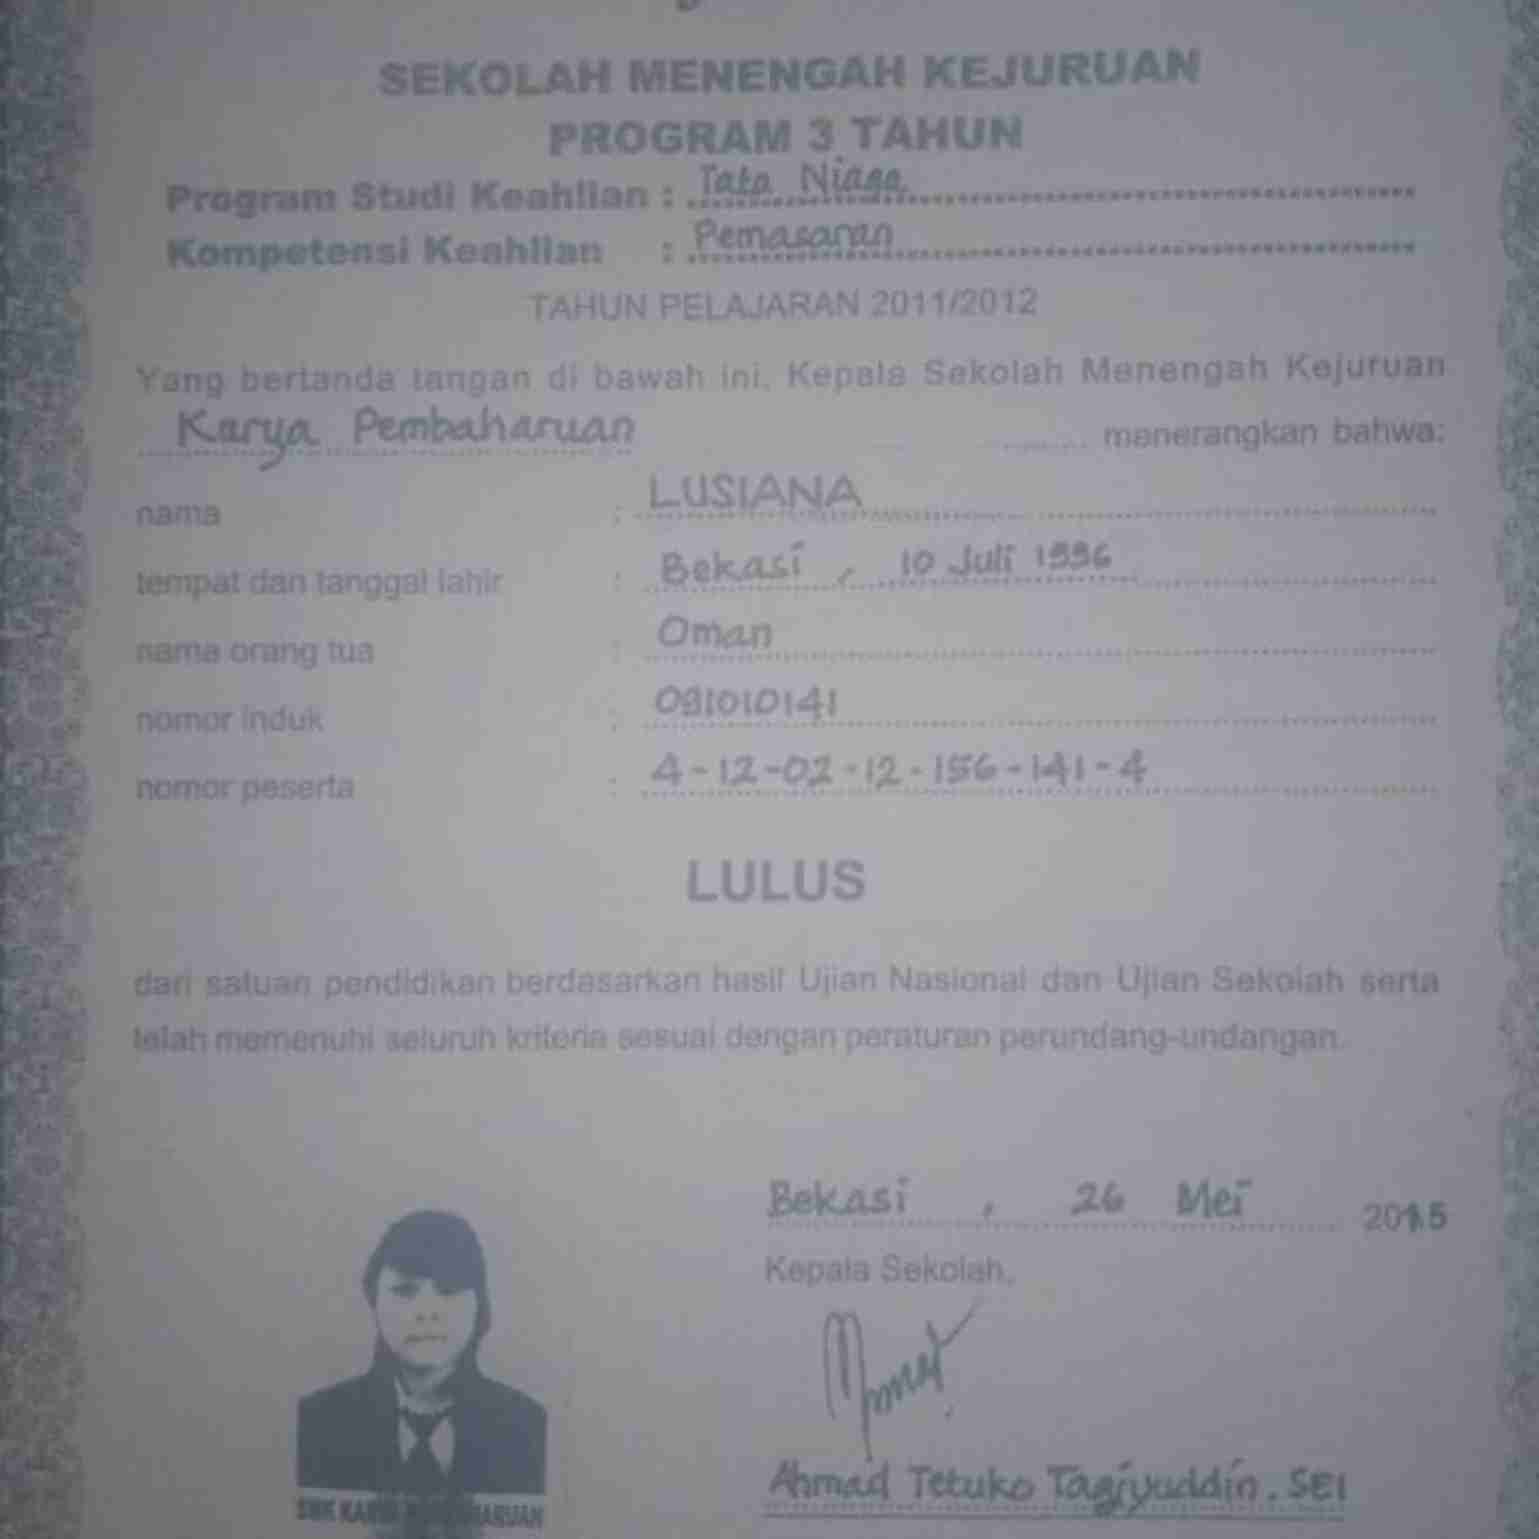 SEKOLAH MENENGAH KEJURUAN
PROGRAM 3 TAHUN
Program Studi Keahlian : Tata Niaga
Kompetensi Keahlian : Pemasaran
TAHUN PELAJARAN 2011/2012
Yang bertanda tangan di bawah ini, Kepala Sekolah Menengah Kejuruan
Karya Pembaharuan menerangkan bahwa:
nama : LUSIANA
tempat dan tanggal lahir : Bekasi, 10 Juli 1996
nama orang tua : Oman
nomor induk : 091010141
nomor peserta : 4-12-02-12-156-141-4
LULUS
dari satuan pendidikan berdasarkan hasil Ujian Nasional dan Ujian Sekolah serta
telah memenuhi seluruh kriteria sesuai dengan peraturan perundang-undangan.
Bekasi, 26 Mei 2015
Kepala Sekolah,
Ahmad Tetuko Taqiyuddin. SEI
SMK KARYA PEMBAHARUAN